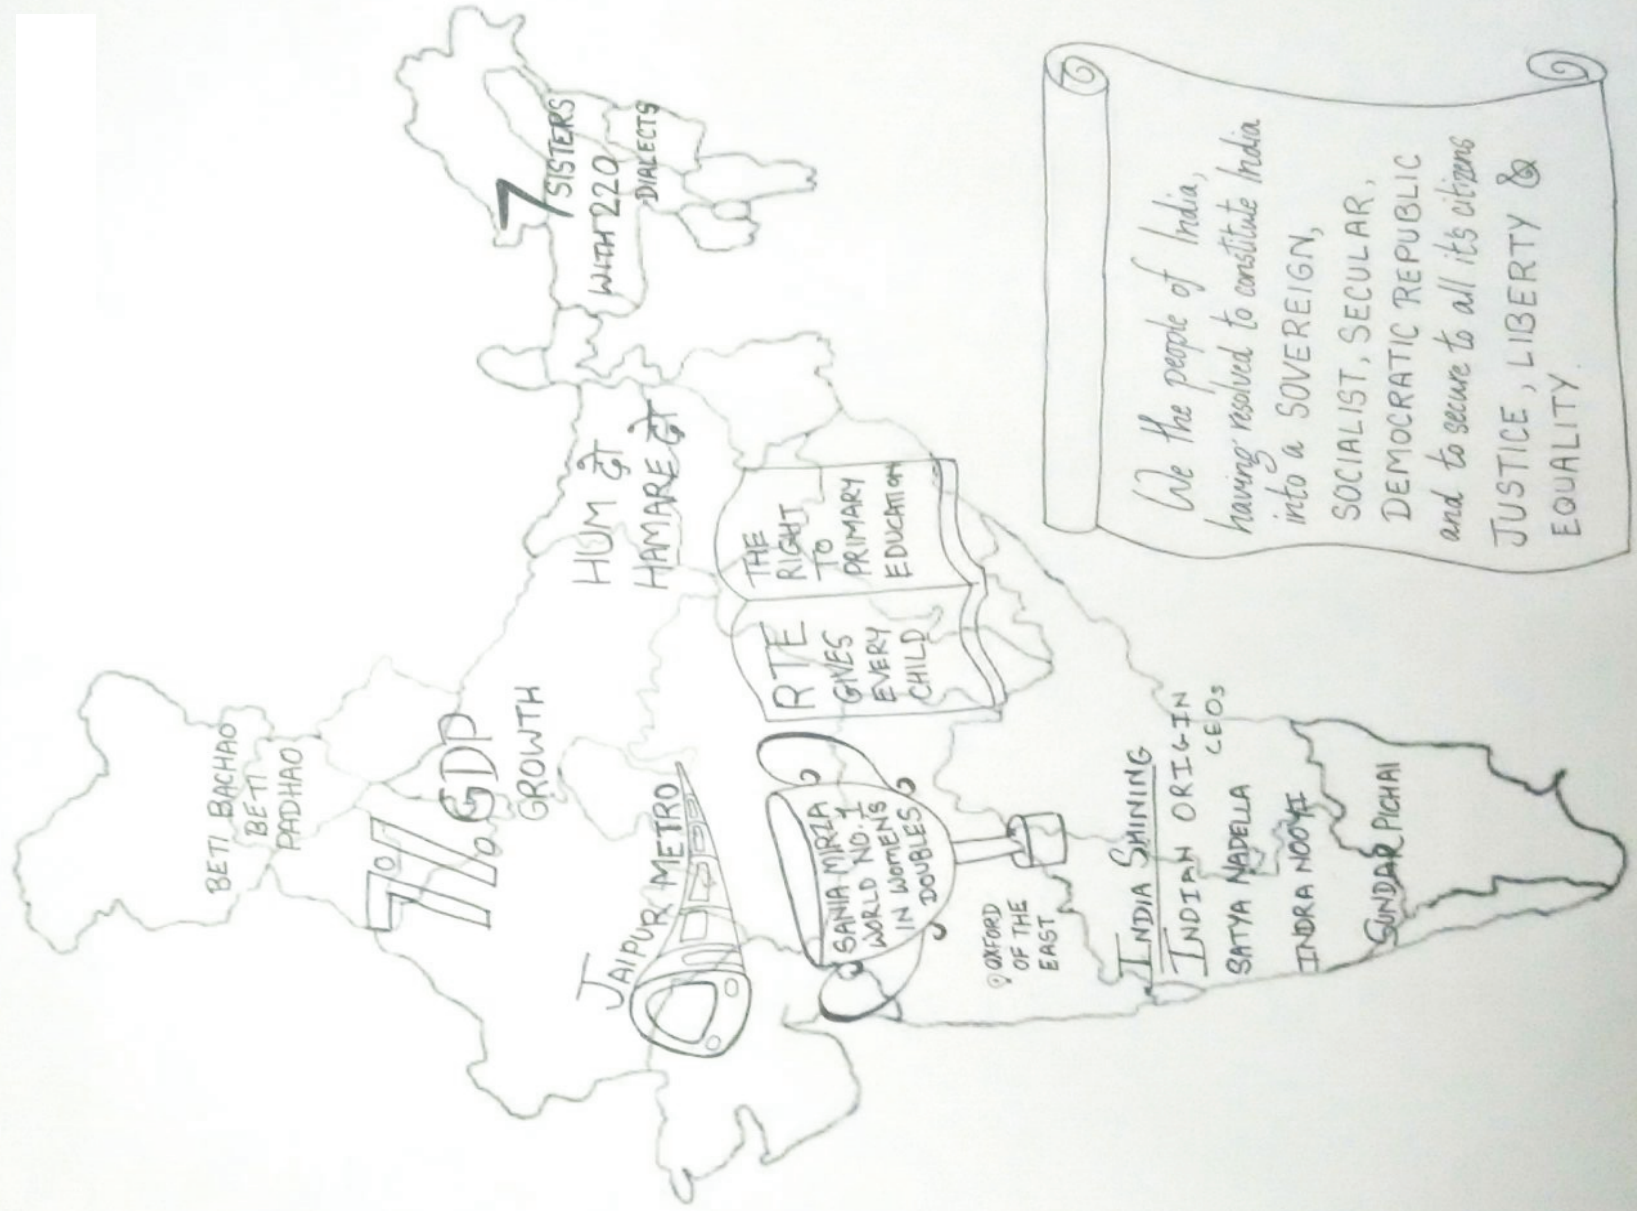 BETI BACHAO
BETI
PADHAO
7%
GDP
GROWTH
7
SISTERS
WITH 220
DIALECTS
HUM दो
HAMARE दो
JAIPUR METRO
RTE
GIVES
EVERY
CHILD
THE
RIGHT
TO
PRIMARY
EDUCATION
SANIA MIRZA
WORLD NO. 1
IN WOMEN'S
DOUBLES
OXFORD
OF THE
EAST
INDIA SHINING
INDIAN ORIGIN
CEOs
SATYA NADELLA
INDRA NOOYI
SUNDAR PICHAI
We the people of India,
having resolved to constitute India
into a SOVEREIGN,
SOCIALIST, SECULAR,
DEMOCRATIC REPUBLIC
and to secure to all it's citizens
JUSTICE, LIBERTY &
EQUALITY.